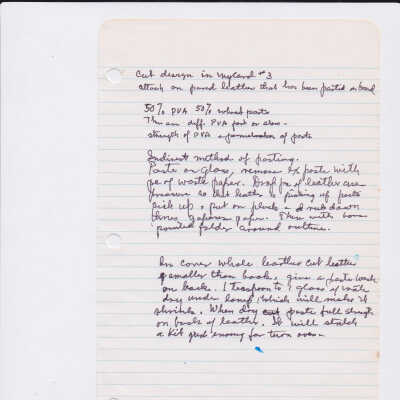 Cut design in mylard #3
attach on pared leather that has been pasted on board
50% PVA 50% wheat paste
There are diff. PVA
strength of PVA & formulation of paste
Indirect method of pasting.
Paste on glass, remove ex paste with
pc of waste paper. Drop pc of leather
pressure so that leather is picking up paste
pick up & put on place & rub down
through Japanese paper. Then with bone
pointed folder around outline.
In cover whole leather cut leather
smaller than book. give a paste wash
on back. 1 teaspoon to 1 glass of water
dry under lamp, which will make it
shrink. When dry paste full strength
on back of leather. It will stretch
a bit good enough for turn over